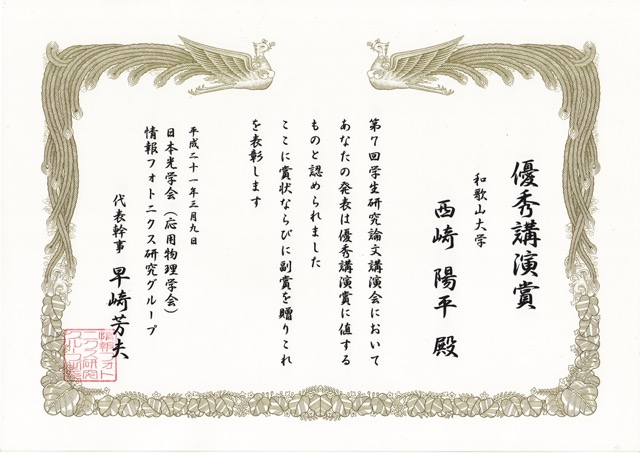 優秀講演賞
和歌山大学
西崎 陽平 殿
第7回学生研究論文講演会において
あなたの発表は優秀講演賞に値する
ものと認められました
ここに賞状ならびに副賞を贈りこれ
を表彰します
平成二十一年三月九日
日本光学会（応用物理学会）
情報フォトニクス研究グループ
代表幹事 早崎芳夫
情報フォト
ニクス研究
グループ